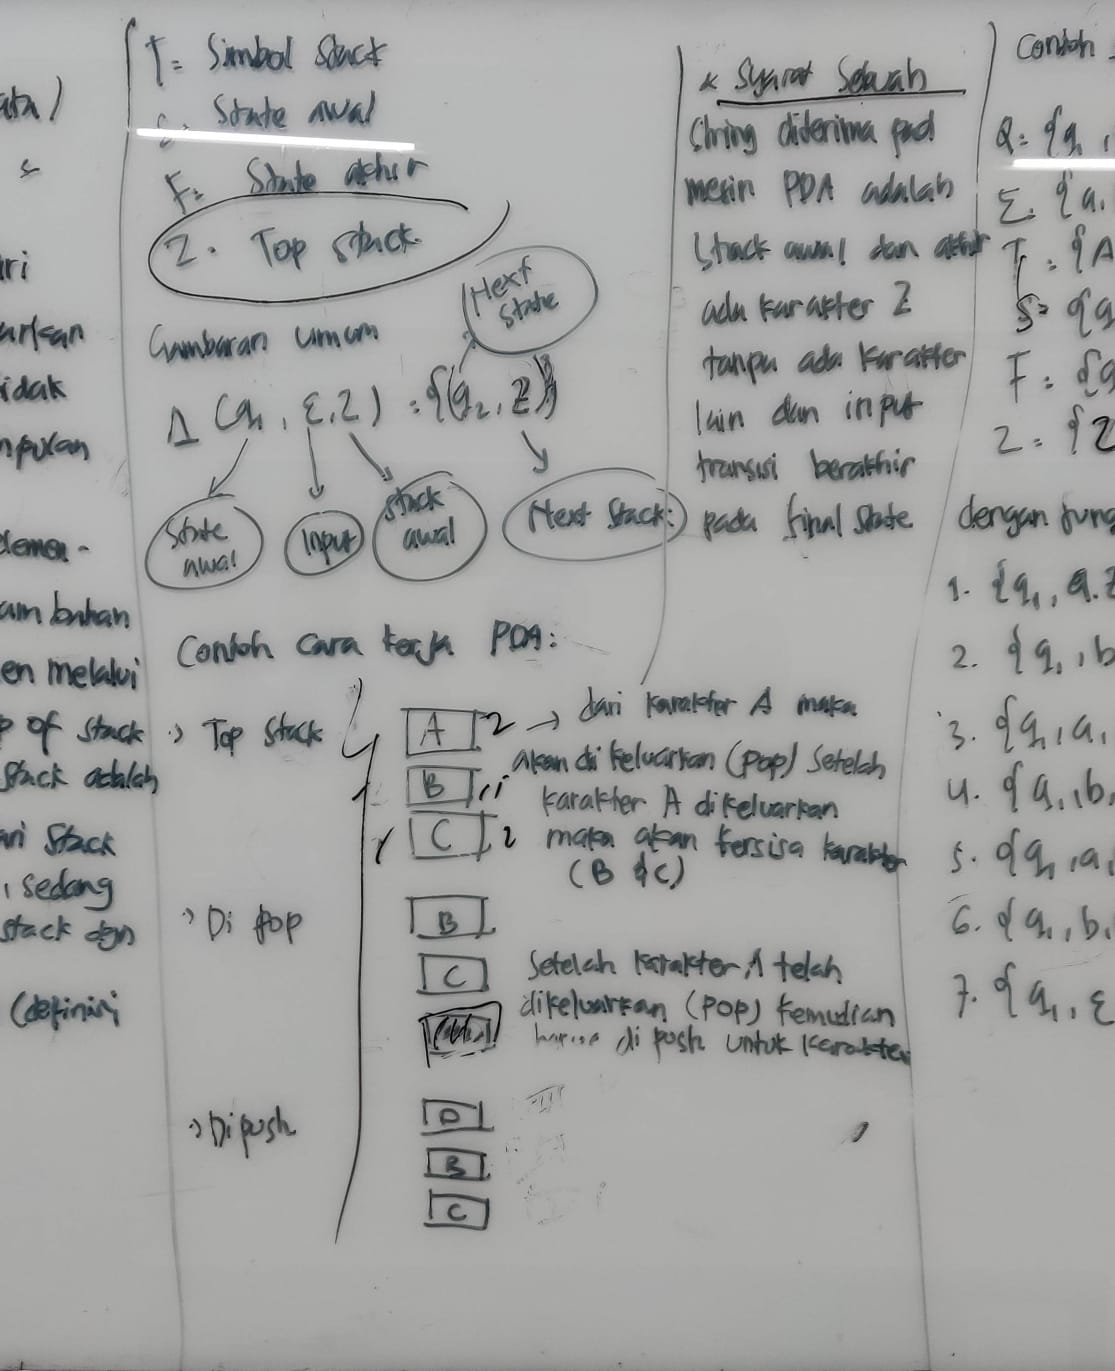 ata)
ari
arkan
idak
mpulan
elemen-
ambahan
en melalui
p of stack
Stack adalah
ari Stack
, sedang
stack dgn
(definisi
T = Simbol Stack
S = State awal
F = State akhir
Z = Top stack
Gambaran umum
Δ (q1, Ɛ, Z) = {(q2, Z)}
Next State
State awal
Input
Stack awal
Next Stack
Contoh Cara kerja PDA:
→ Top Stack
A
B
C
→ dari karakter A maka
akan di keluarkan (pop) Setelah
karakter A dikeluarkan
maka akan tersisa karakter
(B & C)
→ Di pop
B
C
Setelah karakter A telah
dikeluarkan (pop) kemudian
di push untuk karakter
→ Di push
D
B
C
* Syarat Sebuah
String diterima pad
mesin PDA adalah
Stack awal dan akhir
ada karakter Z
tanpa ada karakter
lain dan input
transisi berakhir
pada final state
Contoh
Q = {q1,
Σ = {a,
T = {A
S = {q
F = {q
Z = {Z
dengan fung
1. {q1, a, Z
2. {q1, b
3. {q1, a,
4. {q1, b,
5. {q1, a,
6. {q1, b,
7. {q1, Ɛ